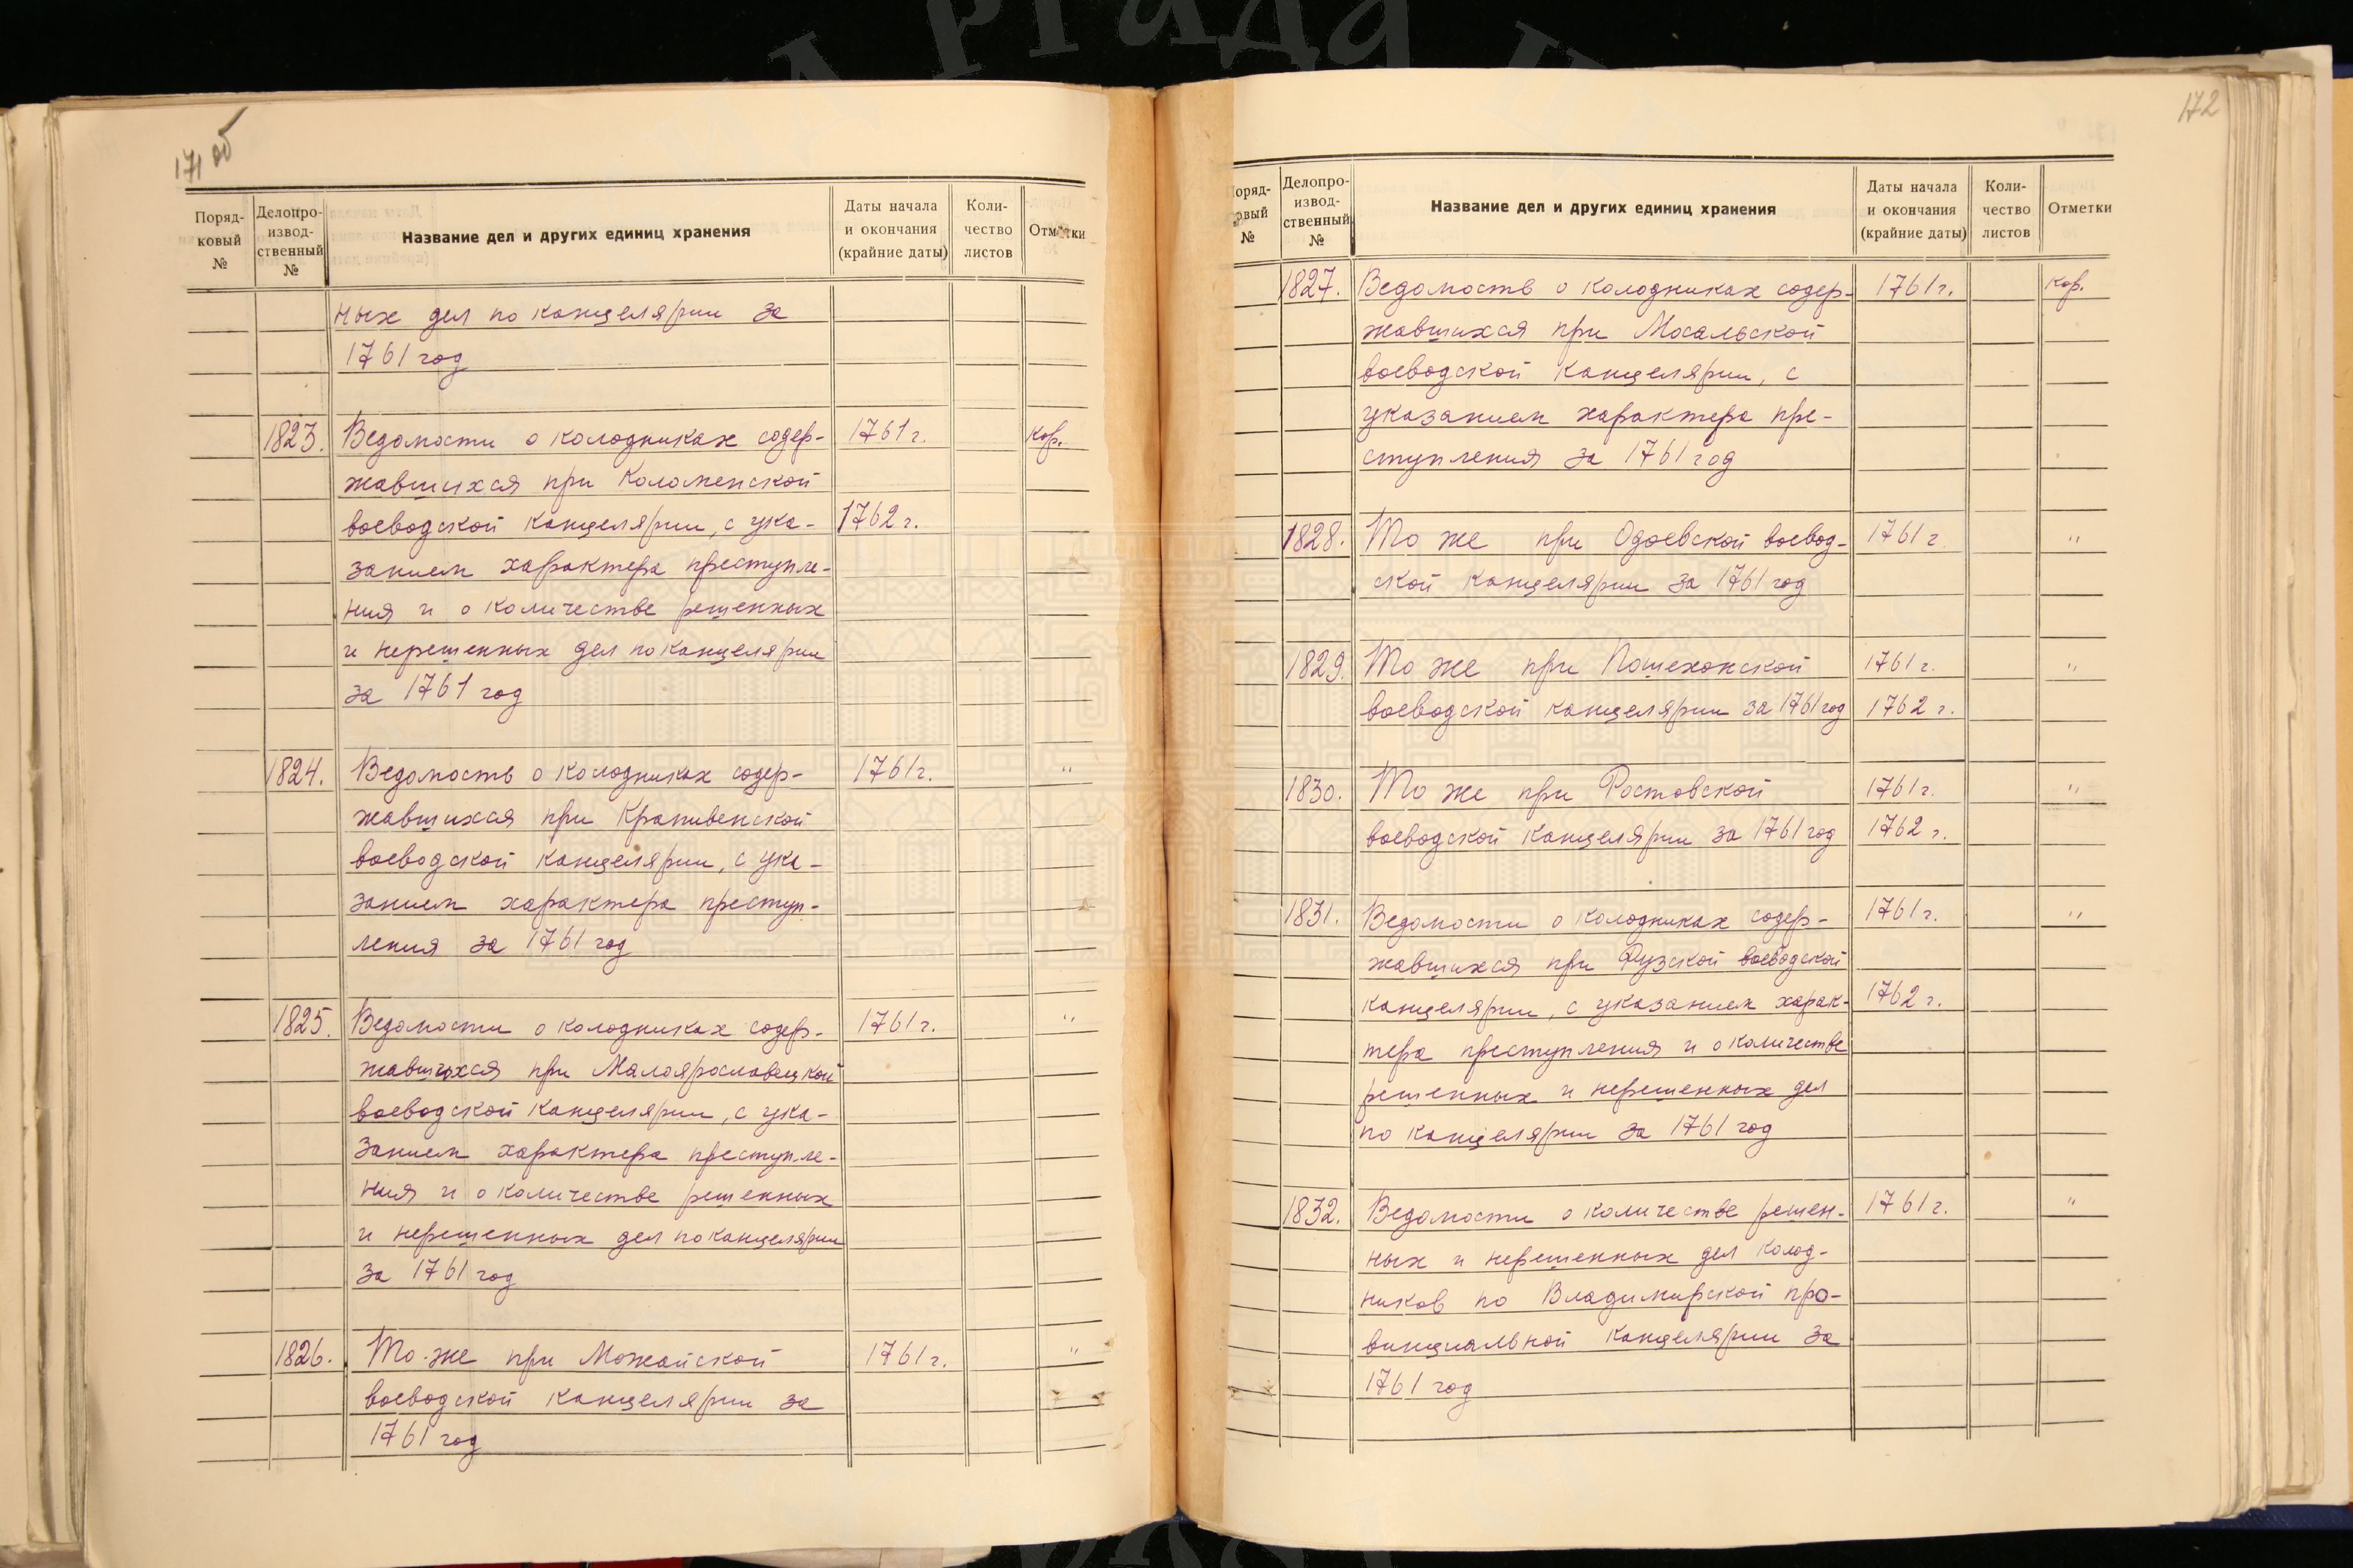 171 об
Поряд-
ковый
№
Делопро-
извод-
ственный
№
Название дел и других единиц хранения
Даты начала
и окончания
(крайние даты)
Коли-
чество
листов
Отметки
ных дел по канцелярии за
1761 год
1823. Ведомости о колодниках содер- 1761 г. кор.
жавшихся при Коломенской
воеводской канцелярии, с ука- 1762 г.
занием характера преступле-
ния и о количестве решенных
и нерешенных дел по канцелярии
за 1761 год
1824. Ведомость о колодниках содер- 1761 г. "
жавшихся при Крапивенской
воеводской канцелярии, с ука-
занием характера преступ-
ления за 1761 год
1825. Ведомости о колодниках содер- 1761 г. "
жавшихся при Малоярославецкой
воеводской канцелярии, с ука-
занием характера преступле-
ния и о количестве решенных
и нерешенных дел по канцелярии
за 1761 год
1826. То же при Можайской 1761 г. "
воеводской канцелярии за
1761 год
172
Поряд-
овый
№
Делопро-
извод-
ственный
№
Название дел и других единиц хранения
Даты начала
и окончания
(крайние даты)
Коли-
чество
листов
Отметки
1827. Ведомость о колодниках содер- 1761 г. кор.
жавшихся при Мосальской
воеводской канцелярии, с
указанием характера пре-
ступления за 1761 год
1828. То же при Одоевской воевод- 1761 г "
ской канцелярии за 1761 год
1829. То же при Пошехонской 1761 г. "
воеводской канцелярии за 1761 год 1762 г.
1830. То же при Ростовской 1761 г. "
воеводской канцелярии за 1761 год 1762 г.
1831. Ведомости о колодниках содер- 1761 г. "
жавшихся при Рузской воеводской
канцелярии, с указанием харак- 1762 г.
тера преступления и о количестве
решенных и нерешенных дел
по канцелярии за 1761 год
1832. Ведомости о количестве решен- 1761 г. "
ных и нерешенных дел колод-
ников по Владимирской про-
винциальной канцелярии за
1761 год